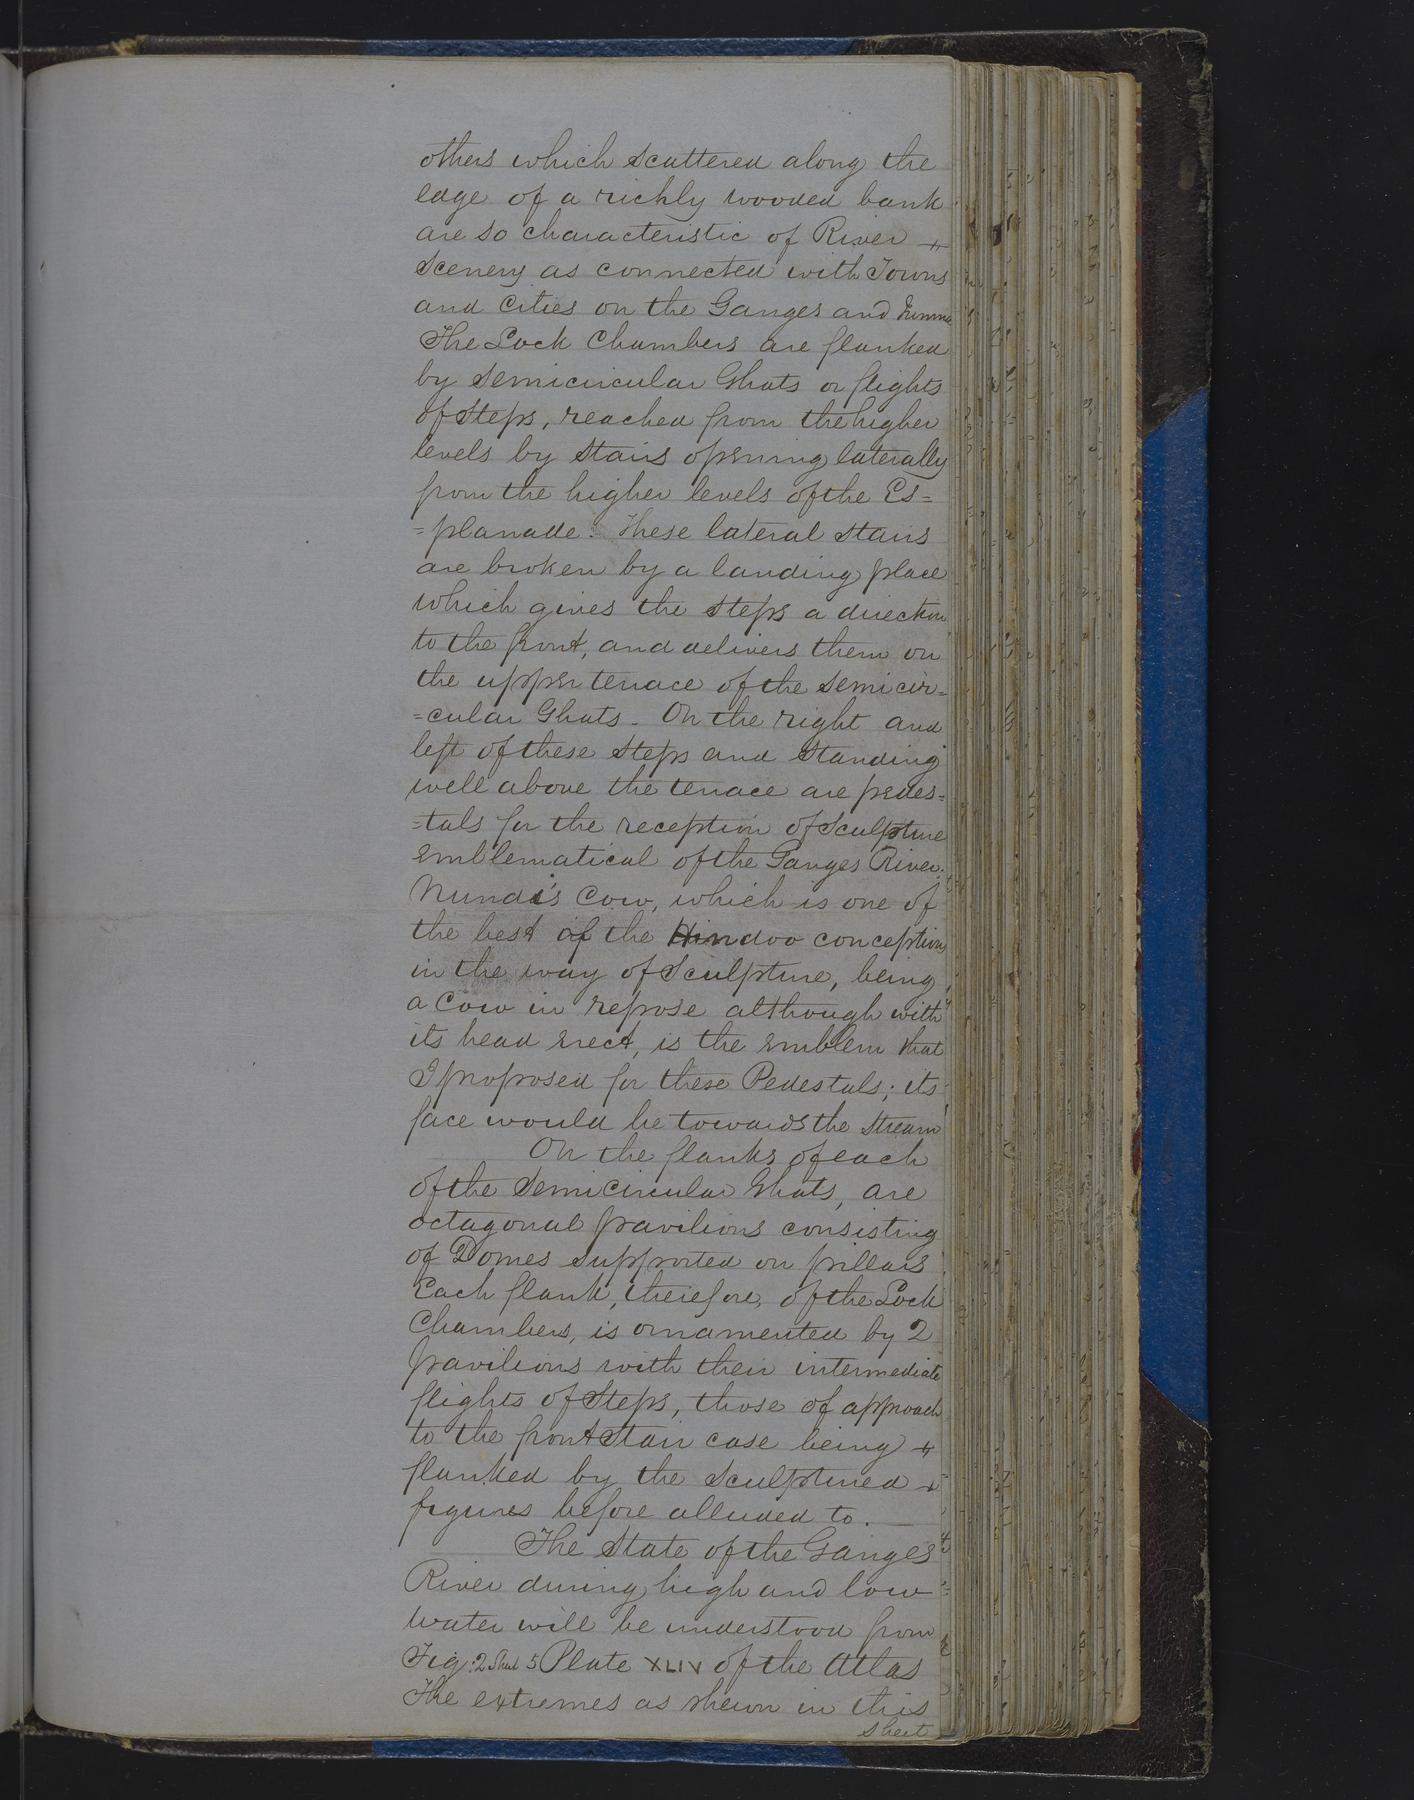 others which scattered along the
edge of a richly wooded bank
are so characteristic of River
Scenery as connected with Towns
and Cities on the Ganges and Jumna
The Lock Chambers are flanked
by Semicircular Ghats or flights
of Steps, reached from the higher
levels by Stairs opening laterally
from the higher levels of the Es=
=planade. These lateral stairs
are broken by a landing place
which gives the steps a direction
to the front, and delivers them on
the upper terrace of the semicir=
=cular Ghats - On the right and
left of these steps and standing
well above the terrace are pedes=
=tals for the reception of Sculpture
emblematical of the Ganges River.
Nundi's Cow, which is one of
the best of the Hindoo conceptions
in the way of Sculpture, being
a Cow in repose although with
its head erect, is the emblem that
I proposed for these Pedestals; its
face would be towards the stream
On the flanks of each
of the Semicircular Ghats, are
octagonal pavilions consisting
of Domes supported on pillars
Each flank, therefore, of the Lock
Chambers, is ornamented by 2
pavilions with their intermediate
flights of Steps, those of approach
to the front Stair case being
flanked by the Sculptured
figures before alluded to.
The State of the Ganges
River during high and low
water will be understood from
Fig: 2 Sheet 5 Plate XLIV of the Atlas
The extremes as shewn in this
sheet